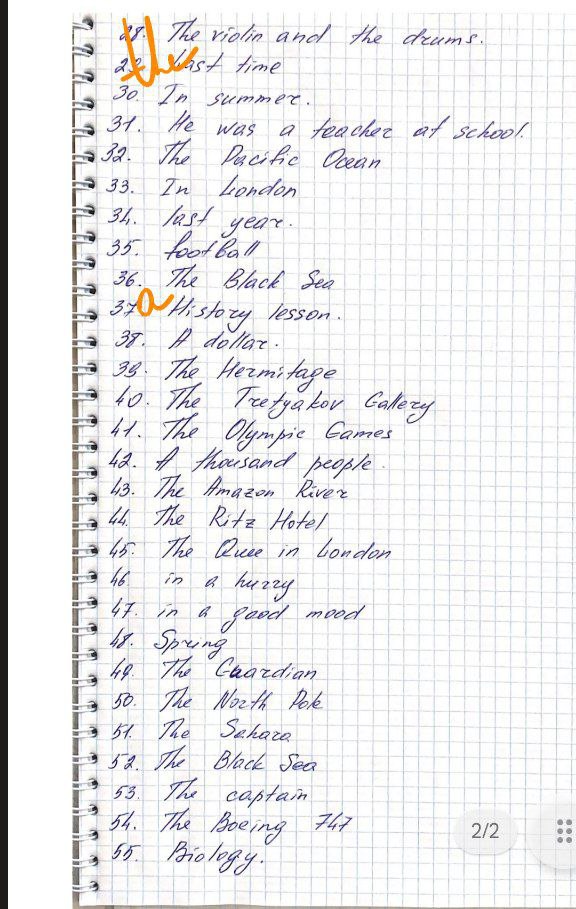 28. The violin and the drums.
29. the last time
30. In summer.
31. He was a teacher at school.
32. The Pacific Ocean
33. In London
34. last year.
35. football
36. The Black Sea
37. a History lesson.
38. A dollar.
39. The Hermitage
40. The Tretyakov Gallery
41. The Olympic Games
42. A thousand people.
43. The Amazon River
44. The Ritz Hotel
45. The Quee in London
46. in a hurry
47. in a good mood
48. Spring
49. The Guardian
50. The North Pole
51. The Sahara
52. The Black Sea
53. The captain
54. The Boeing 747
2/2
55. Biology.